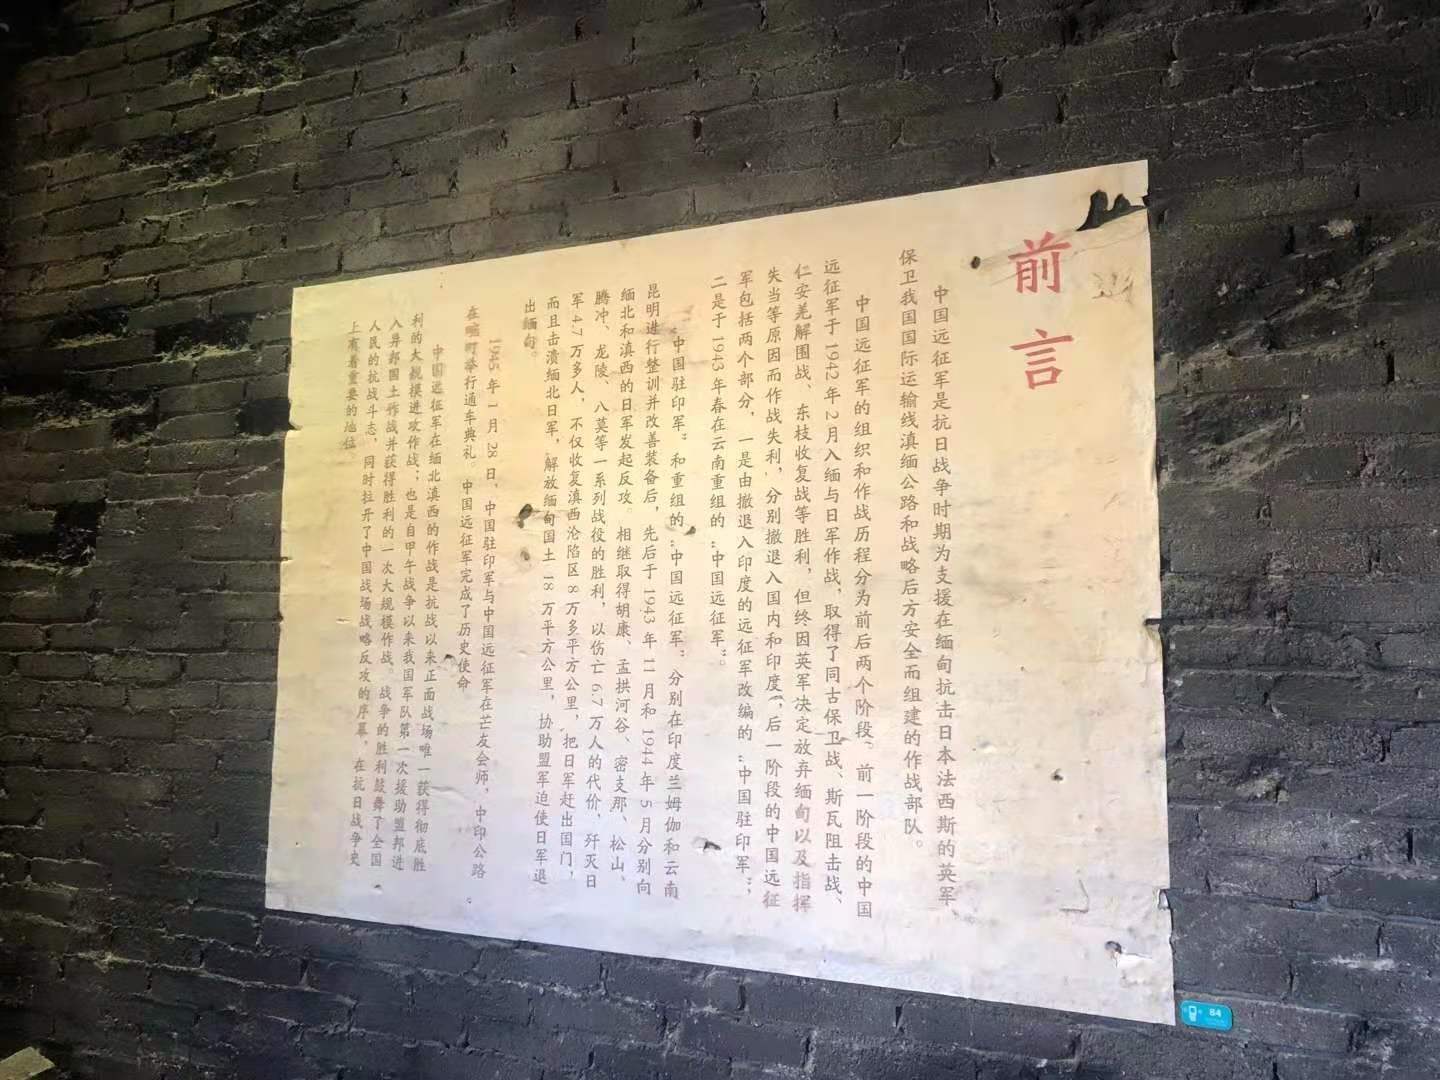 前言
中国远征军是抗日战争时期为支援在缅甸抗击日本法西斯的英军
保卫我国国际运输线滇缅公路和战略后方安全而组建的作战部队。
中国远征军的组织和作战历程分为前后两个阶段。前一阶段的中国
远征军于1942年2月入缅与日军作战，取得了同古保卫战、斯瓦阻击战、
仁安羌解围战、东枝收复战等胜利，但终因英军决定放弃缅甸以及指挥
失当等原因而作战失利，分别撤退入国内和印度，后一阶段的中国远征
军包括两个部分，一是由撤退入印度的远征军改编的“中国驻印军”，
二是于1943年春在云南重组的“中国远征军”。
“中国驻印军”和重组的“中国远征军”分别在印度兰姆伽和云南
昆明进行整训并改善装备后，先后于1943年11月和1944年5月分别向
缅北和滇西的日军发起反攻。相继取得胡康、孟拱河谷、密支那、松山、
腾冲、龙陵、八莫等一系列战役的胜利，以伤亡6.7万人的代价，歼灭日
军4.7万多人，不仅收复滇西沦陷区8万多平方公里，把日军赶出国门，
而且击溃缅北日军，解放缅甸国土18万平方公里，协助盟军迫使日军退
出缅甸。
1945年1月28日，中国驻印军与中国远征军在芒友会师，中印公路
在畹町举行通车典礼。中国远征军完成了历史使命
中国远征军在缅北滇西的作战是抗战以来正面战场唯一获得彻底胜
利的大规模进攻作战；也是自甲午战争以来我国军队第一次援助盟邦进
入异邦国土作战并获得胜利的一次大规模作战。战争的胜利鼓舞了全国
人民的抗战斗志，同时拉开了中国战场战略反攻的序幕，在抗日战争史
上有着重要的地位。
84